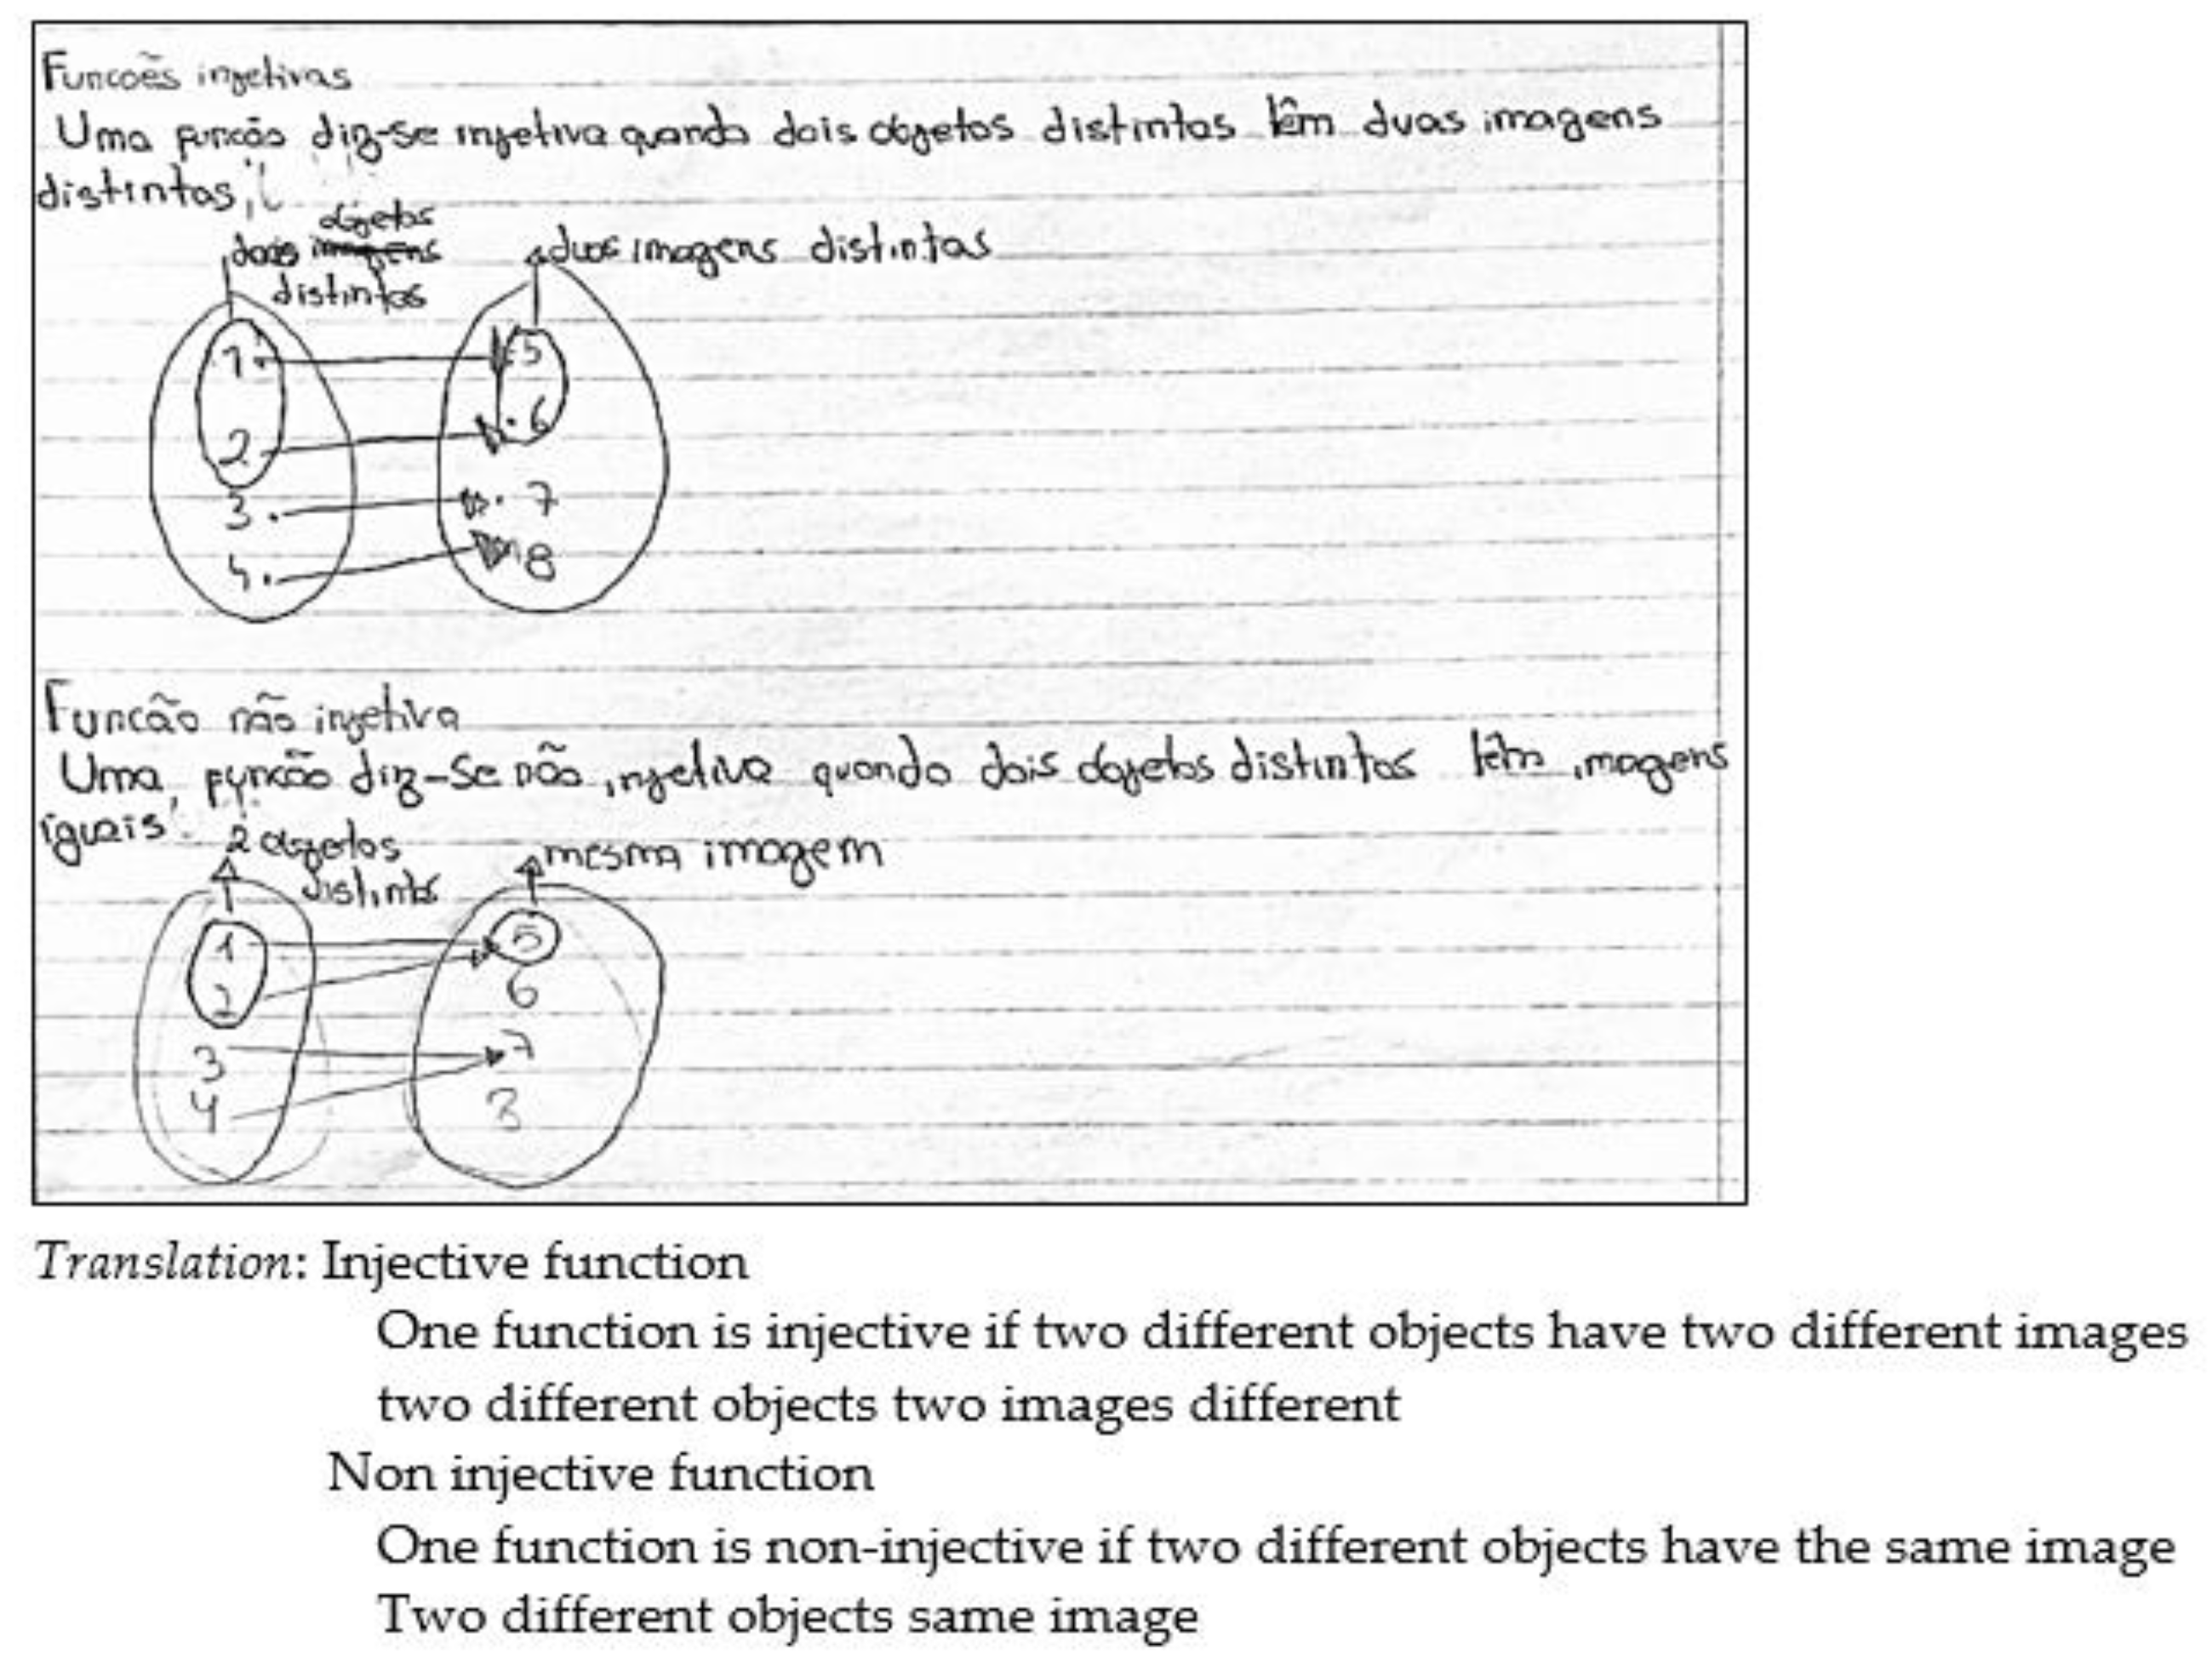 Funcoẽs injetivas
Uma funcão diz-se injetiva quando dois objetos distintos têm duas imagens
distintas,
objetos
dois imagens
distintos
duas imagens distintas
1 5
2 6
3 7
4 8
Funcão não injetiva
Uma funcão diz-se não injetiva quando dois objetos distintos têm imagens
iguais.
2 objetos
distintos
mesma imagem
1 5
2 6
3 7
4 8
Translation: Injective function
One function is injective if two different objects have two different images
two different objects two images different
Non injective function
One function is non-injective if two different objects have the same image
Two different objects same image